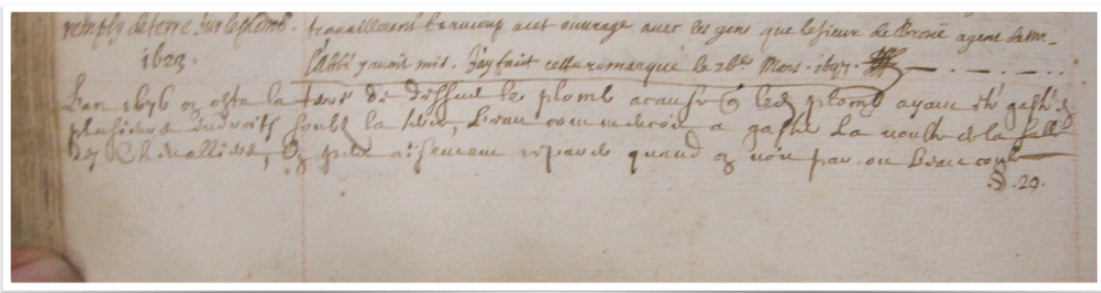 remply de terre sur le plomb. travaillerent beaucoup a cet ouvrage avec les gens que le sieur de Broüe agent de Mr.
1623. l'Abbé y avoit mis. J'ay fait cette remarque le 26e. Mars. 1697.
L'an 1676 on osta la terre de dessus le plomb a cause q led plomb ayant été gasté en
plusieurs endroits soubz la terre, l'eau commencoit a gaster la voulte de la salle
des Chevalliers, on peut aisement reparer quand on voit par ou l'eau coule
§. 29.